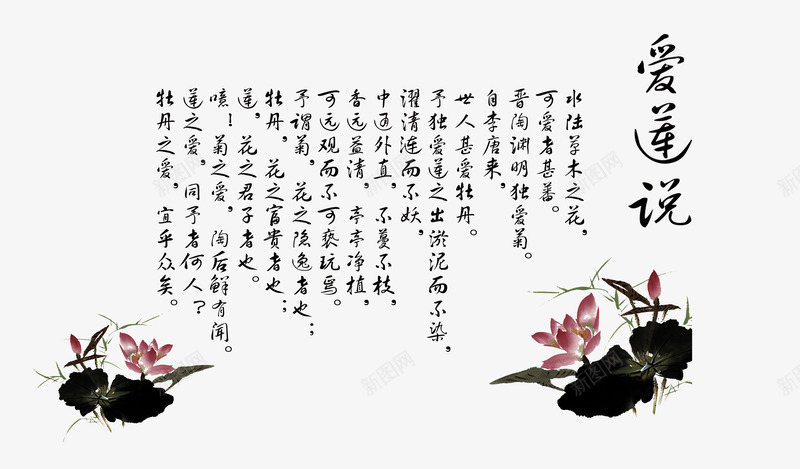 爱莲说
水陆草木之花，
可爱者甚蕃。
晋陶渊明独爱菊。
自李唐来，
世人甚爱牡丹。
予独爱莲之出淤泥而不染，
濯清涟而不妖，
中通外直，不蔓不枝，
香远益清，亭亭净植，
可远观而不可亵玩焉。
予谓菊，花之隐逸者也；
牡丹，花之富贵者也；
莲，花之君子者也。
噫！菊之爱，陶后鲜有闻。
莲之爱，同予者何人？
牡丹之爱，宜乎众矣。
新图网